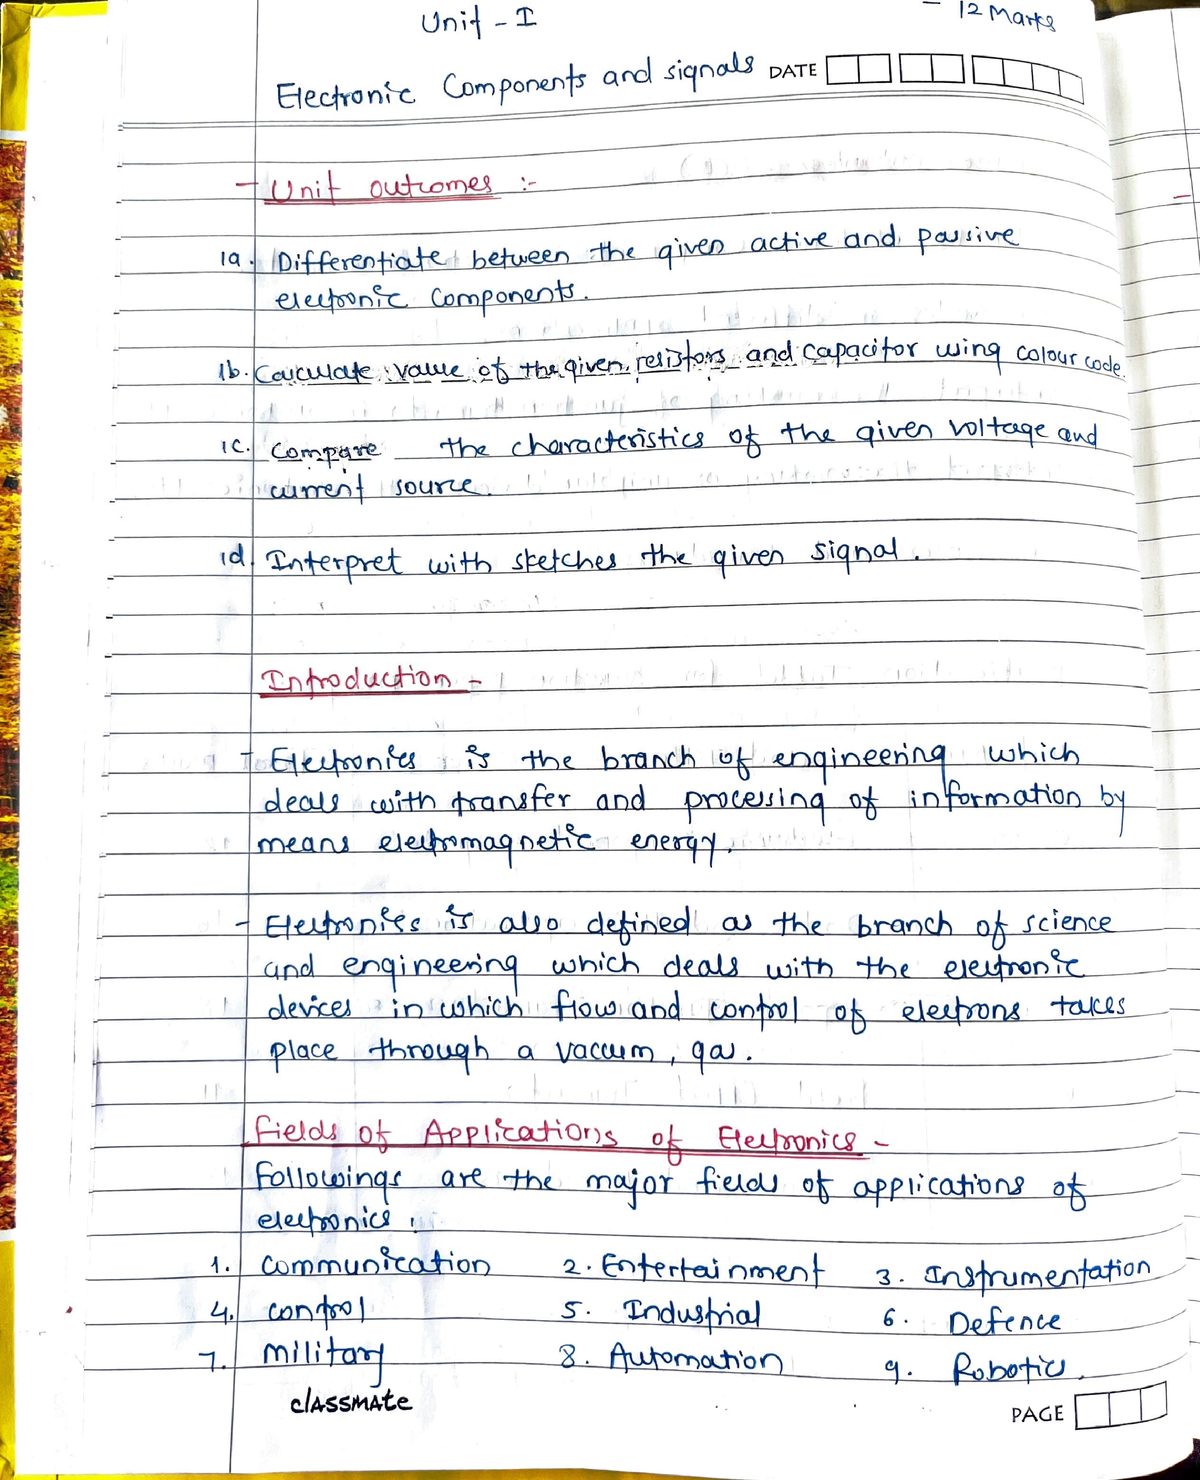 Unit - I
- 12 Marks
Electronic Components and signals DATE
- Unit outcomes :-
1a. Differentiate between the given active and passive
electronic components.
1b. Calculate value of the given resistors and capacitor using colour code.
1c. Compare the characteristics of the given voltage and
current source.
1d. Interpret with sketches the given signal.
Introduction -
- Electronics is the branch of engineering which
deals with transfer and processing of information by
means electromagnetic energy.
- Electronics is also defined as the branch of science
and engineering which deals with the electronic
devices in which flow and control of electrons takes
place through a vaccum, gas.
Fields of Applications of Electronics -
Followings are the major fields of applications of
electronics.
1. Communication 2. Entertainment 3. Instrumentation
4. control 5. Industrial 6. Defence
7. military 8. Automation 9. Robotics.
classmate
PAGE